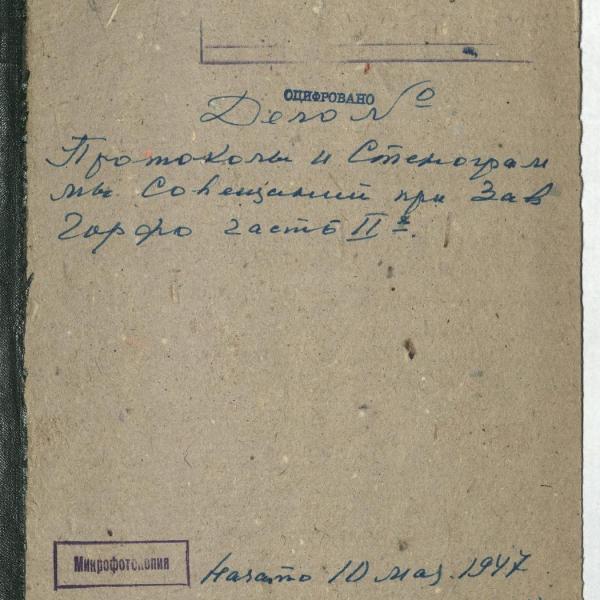 ОЦИФРОВАНО
Дело №
Протоколы и Стенограм
мы Совещаний при Зав
Горфо часть II я.
Микрофотокопия
Начато 10 мая. 1947